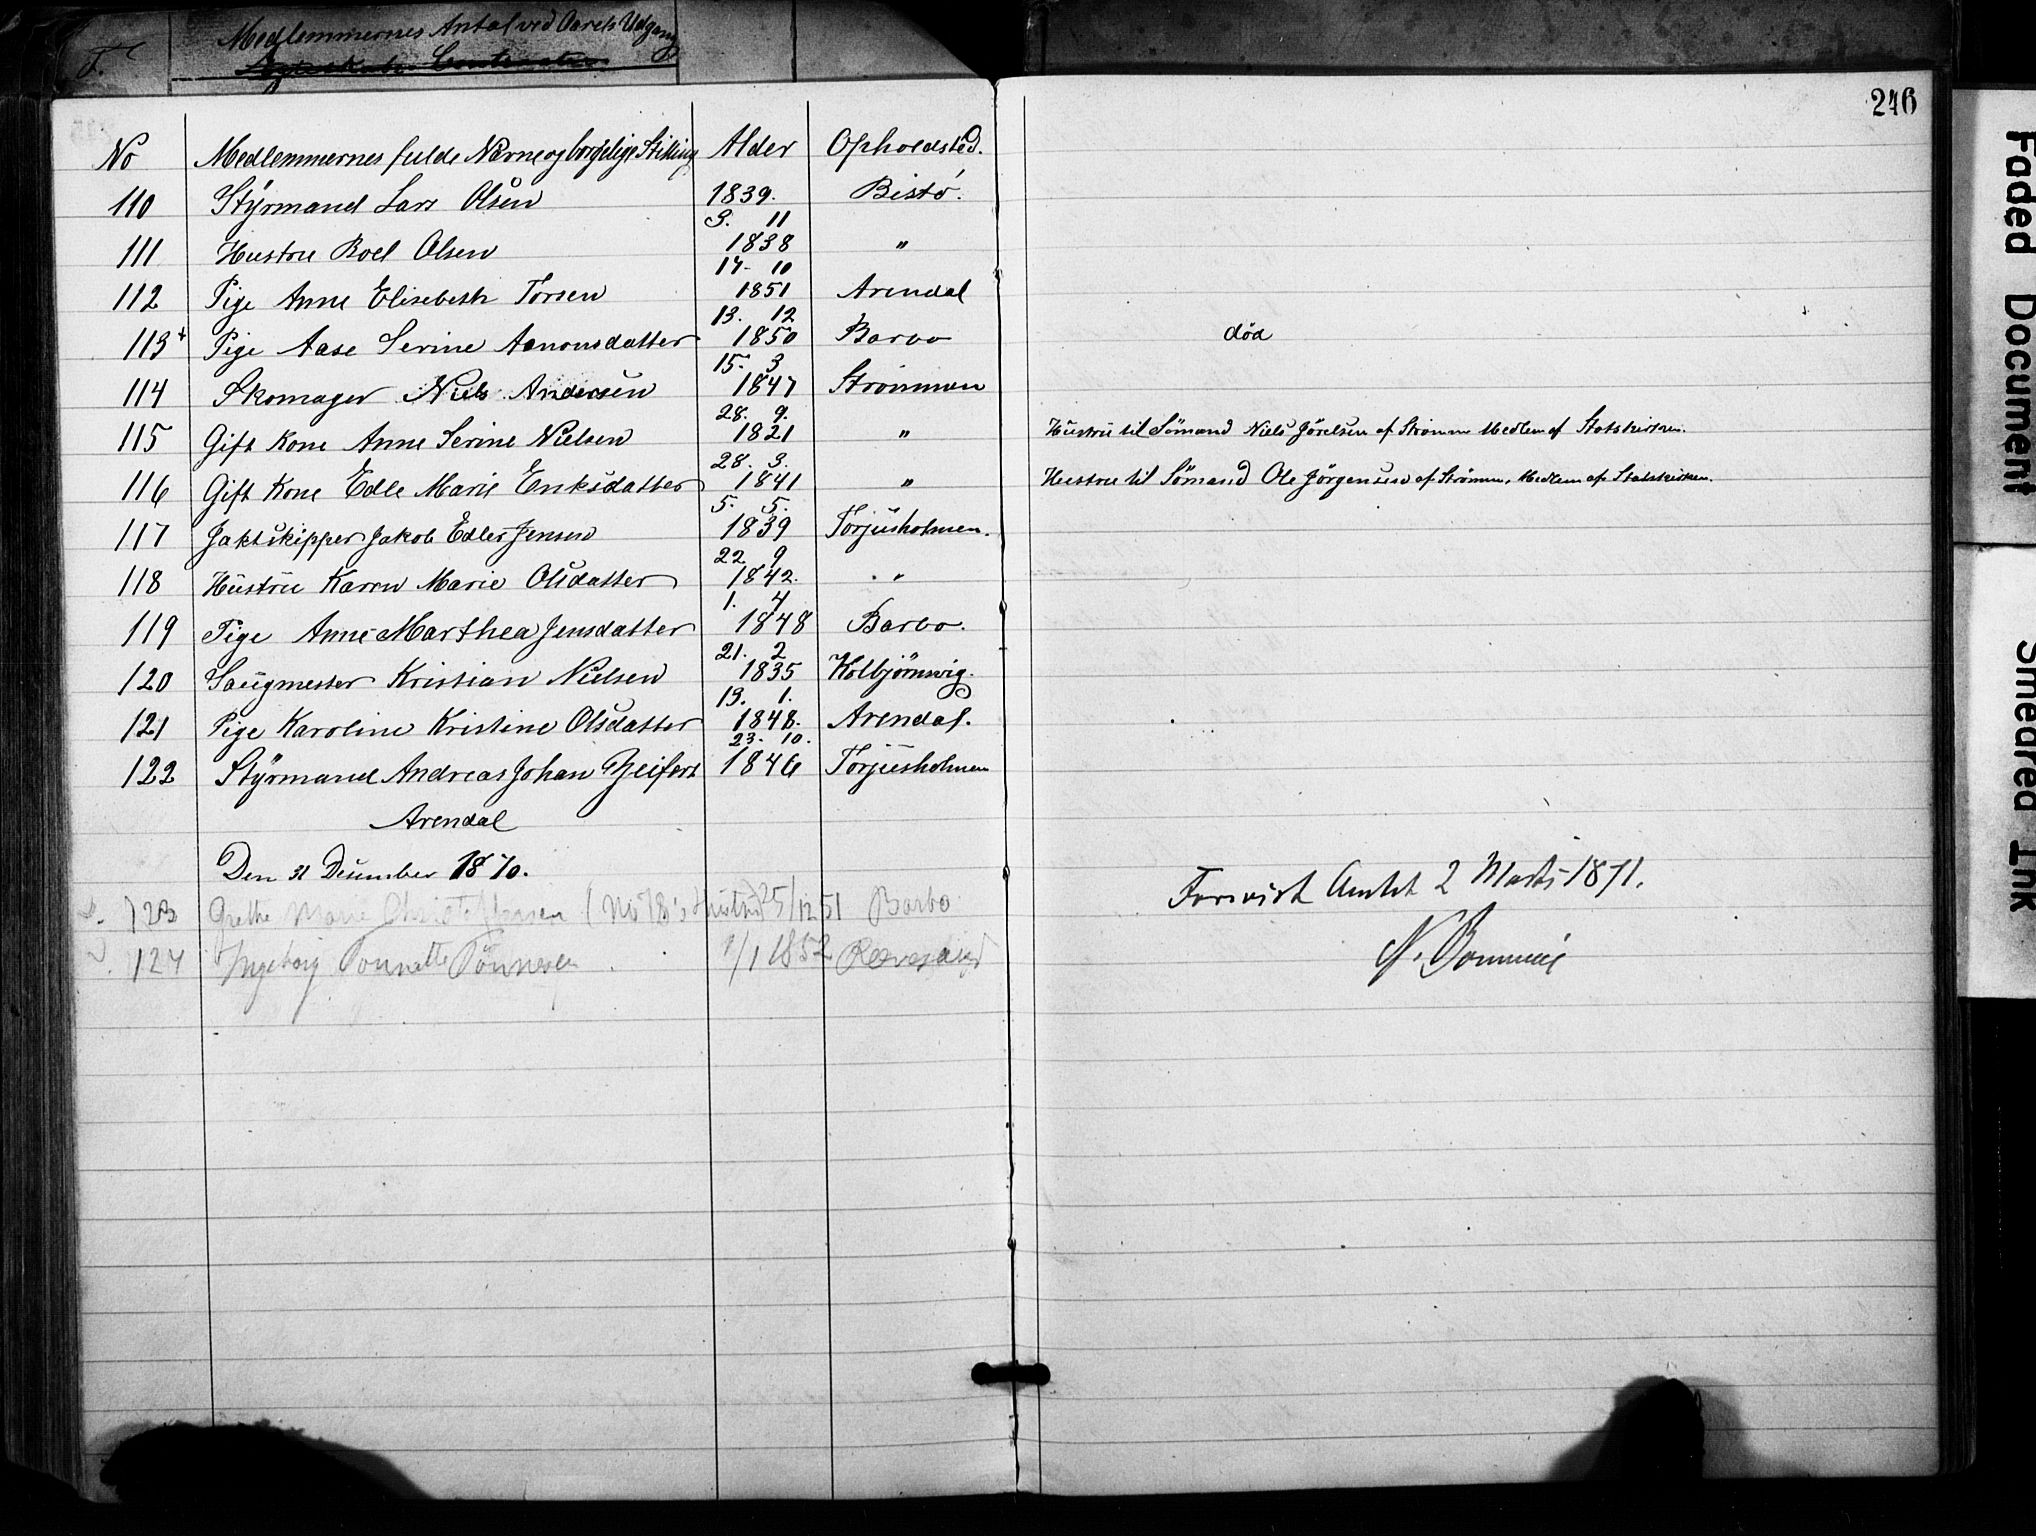 F.
Medlemmernes Antal ved Aarets Udgang
246
No Medlemmernes fulde Navne og borgelige Stilling Alder Opholdsted.
110 Styrmand Lars Olsen 1839. Bistö.
3. 11
111 Hustru Boel Olsen 1838 "
17- 10
112 Pige Anne Elisebeth Torsen 1851 Arendal
13. 12
113+ Pige Aase Serine Aanonsdatter 1850 Barbo død
15. 3
114 Skomager Niels Andersen 1847 Strømmen
28. 9.
115 Gift Kone Anne Serine Nielsen 1821 " Hustru til Sömand Niels Jörelsen af Strømm Medlem af Statskirken.
28. 3.
116 Gift Kone Edle Marie Eriksdatter 1841 " Hustru til Sömand Ole Jörgensen af Strömm, Medlem af Statskirken.
5. 5.
117 Jaktskipper Jakob Edler Jensen 1839 Torjusholmen.
22 9
118 Hustru Karen Marie Olsdatter 1842. "
1. 4
119 Pige Anne Marthea Jensdatter 1848 Barbo.
21. 2
120 Saugmester Kristian Nielsen 1835 Kolbjörnsvig.
13. 1.
121 Pige Karoline Kristine Olsdatter 1848. Arendal.
23. 10.
122 Styrmand Andreas Johan Zeifert 1846 Torjusholmen
Arendal
Den 31 December 1870.
Forevist Amtet 2 Marts 1871.
123 Grethe Marie (No 78's Hustru) 25/12 51 Barbo
124 Ingeborg Tonnette Tönnesen /1 1852 Revesand
Faded Document
Smeared Ink